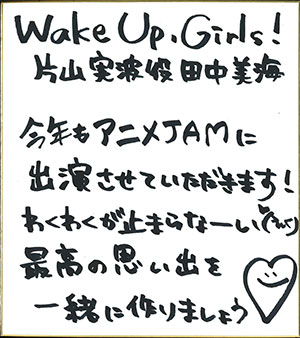 Wake Up, Girls!
片山実波役 田中美海
今年もアニメJAMに
出演させていただきます!
わくわくが止まらなーい
最高の思い出を
一緒に作りましょう